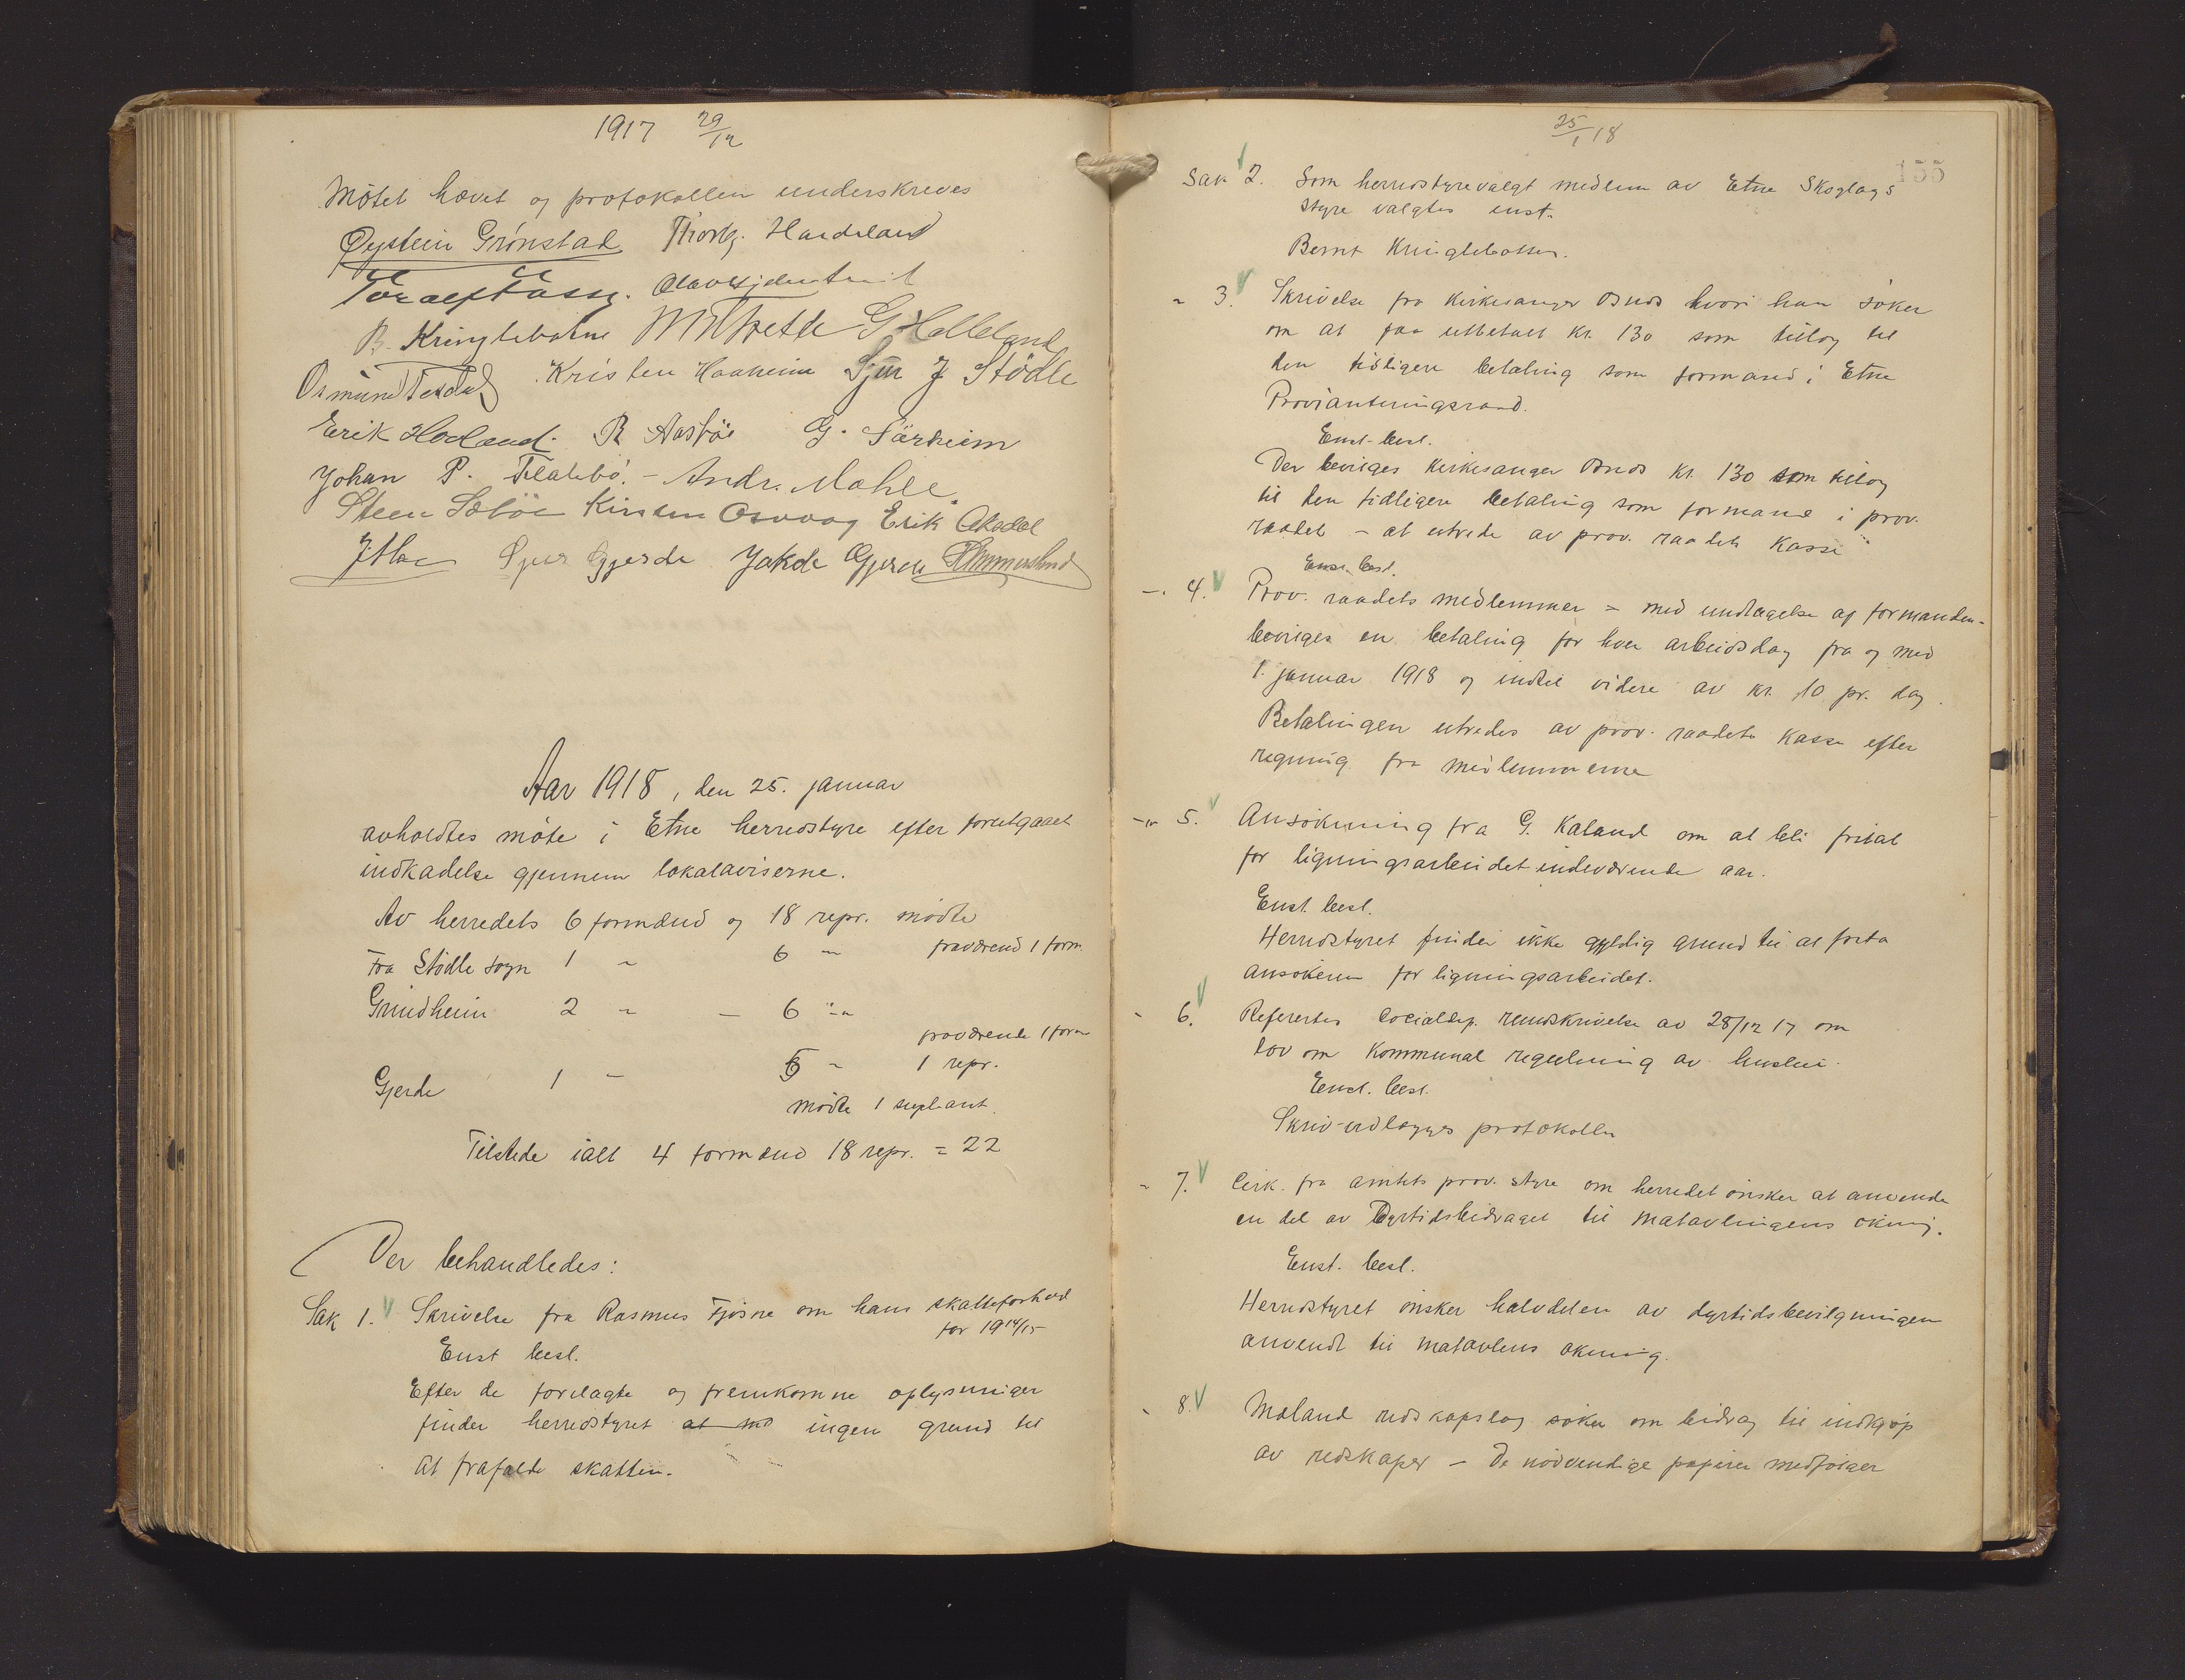 1917 29/12
Møtet hævet og protokollen underskreves
Øystein Grønstad Thorb. Handeland
B. Kringlebotne G Halleland
Kristen Haaheim Sjur J Stødle
Erik Hovland. R Aasbøe G. Særheim
Johan P. - Andr. Mæhle.
Steen Sæbøe Osvaag Erik
Sjur Gjerde Jakob Gjerde
Aar 1918, den 25. januar
avholdtes møte i Etne herredstyre efter forutgaaet
indkadelse gjennem lokalaviserne.
Av herredets 6 formænd og 18 repr. mødte
fraværend 1 form.
Fra Stødle sogn 1 " 6 "
Grindheim 2 " - 6 "
fraværende 1 form
Gjerde 1 - 5 " 1 repr.
mødte 1 supleant.
Tilstede ialt 4 formænd 18 repr. = 22
Der behandledes:
Sak 1. Skrivelse fra Rasmus Fjøsne om hans skatteforhold
for 1914/15
Enst besl.
Efter de forelagte og fremkomne oplysninger
finder herredstyret at ingen grund til
at frafalde skatten.
25/1 18
155
Sak 2. Som herredstyrevalgt medlem av Etne Skoglags
styre valgtes enst.
Bernt Kringlebotten.
" 3. Skrivelse fra kirkesanger Osnes hvori han søker
om at faa utbetalt kr. 130 som tillæg til
den tidligere betaling som formand i Etne
Provianteringsraad.
Enst. besl.
Der bevilges kirkesanger Osnes kr. 130 som tillæg
til den tidligere betaling som formand i prov.
raadet - at utrede av prov. raadets kasse
Enst. besl.
-" 4. Prov. raadets medlemmer - med undtagelse af formanden -
bevilges en betaling for hver arbeidsdag fra og med
1. januar 1918 og indtil videre av kr. 10 pr. dag.
Betalingen utredes av prov. raadets kasse efter
regning fra medlemmerne
-" 5. Ansøkning fra G. Kaland om at bli fritat
for ligningsarbeidet indeværende aar.
Enst. besl.
Herredstyret finder ikke gyldig grund til at frita
ansøkeren for ligningsarbeidet.
" 6. Referertes Socialdep. rundskrivelse av 28/12 17 om
lov om kommunal regulering av husleie.
Enst. besl.
Skriv vedlægges protokollen
" 7. Cirk. fra amtets prov. styre om herredet ønsker at anvende
en del av Dyrtidsbidraget til matavlingens økning.
Enst. besl.
Herredstyret ønsker halvdelen av dyrtidsbevilgningen
anvendt til matavlens økning.
" 8. Mæland redskapslag søker om bidrag til indkjøp
av redskaper - De nødvendige papirer medfølger